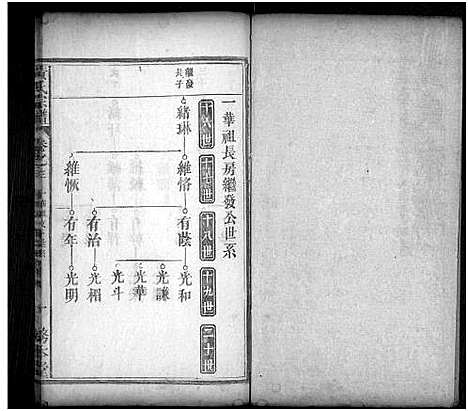 一華祖長房繼發公世系
十六世
十七世
十八世
十九世
二十世
繼發
長子
緒琳
維恪
有蔭
光和
光謙
光華
光斗
有治
光裕
維恢
有年
光明